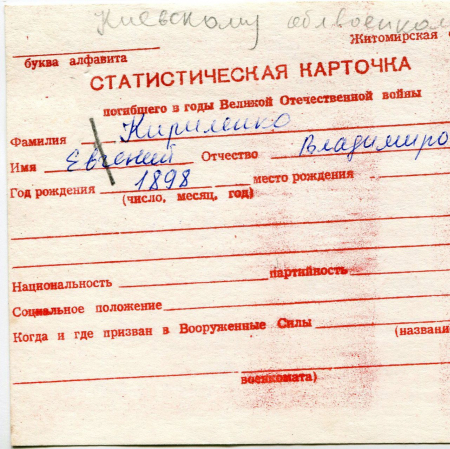 Киевскому облвоенком
Житомирская
буква алфавита
СТАТИСТИЧЕСКАЯ КАРТОЧКА
погибшего в годы Великой Отечественной войны
Фамилия Кириленко
Имя Евгений Отчество Владимиро
Год рождения 1898 место рождения
(число, месяц, год)
Национальность партийность
Социальное положение
Когда и где призван в Вооруженные Силы (названи
военкомата)